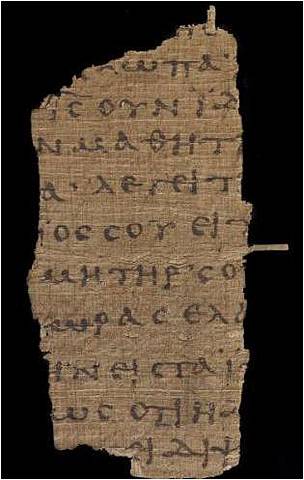 ΩΠΑ
ΙΣ ΟΥΝ ΙΔ
Ν ΜΑΘΗΤ
Α· ΛΕΓΕΙ Τ
ΙΟΣ ΣΟΥ ΕΙΤ
ΜΗΤΗΡ ΣΟ
ΩΡΑΣ ΕΛΑ
ΗΝ ΕΙΣ ΤΑ Ι
ΩΣ ΟΤΙ Η